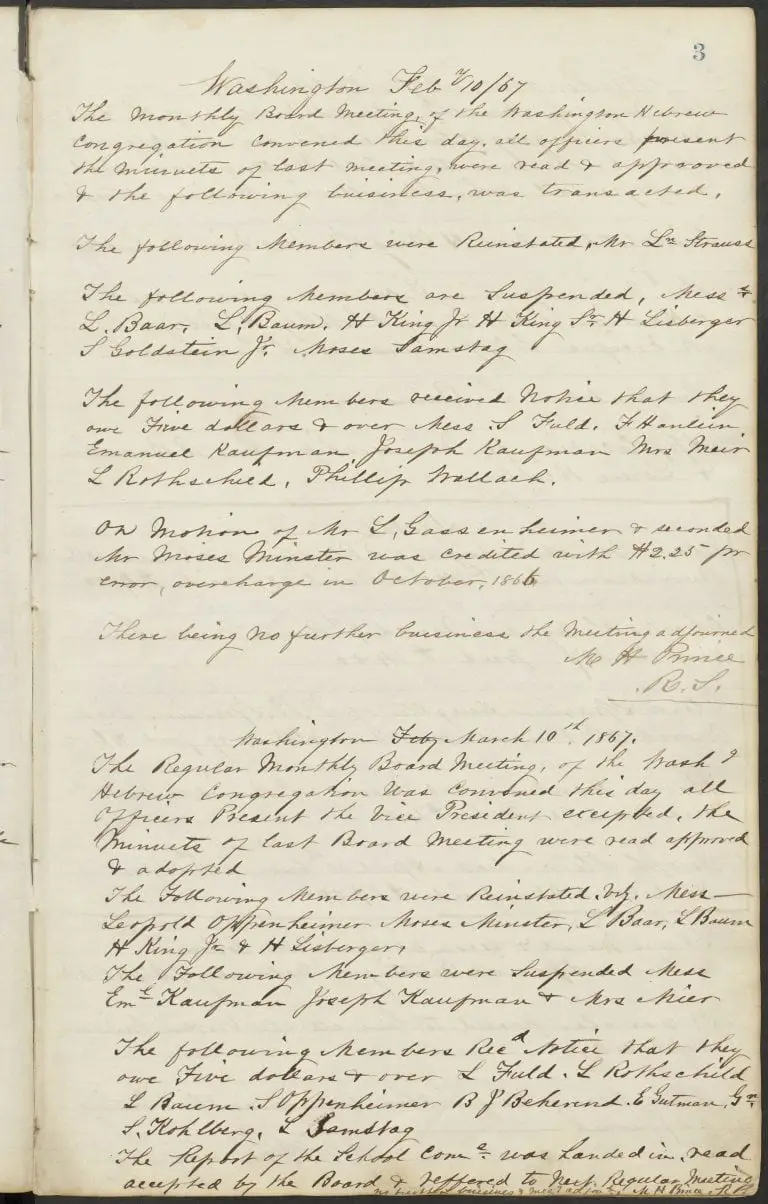 3
Washington Feby 10/67
The Monthly Board Meeting, of the Washington Hebrew
Congregation convened this day. all officers present
the minuets of last meeting, were read & approoved
& the following buisiness, was transacted.
The following Members were Reinstated, Mr Ln Strauss
The following Members are Suspended, Messrs
L. Baar, L. Baum, H King Jr H King Sr. H Lisberger
S Goldstein Jr. Moses Samstag
The following Members received Notice that they
owe Five dollars & over Mess. S Fuld. F Hanlein
Emanuel Kaufman, Joseph Kaufman Mrs Meir
L Rothschild, Phillip Wallach.
On Motion of Mr L, Gassenheimer & seconded
Mr Moses Minster was credited with $2.25 pr
error, overcharge in October, 1866
There being no further buisiness the Meeting adjourned
M H Prince
R. S.
Washington Feby March 10th. 1867.
The Regular Monthly Board Meeting, of the Wash g
Hebrew Congregation was convened this day all
Officers Present the Vice President excepted, the
Minuets of last Board Meeting were read approved
& adopted
The Following Members were Reinstated. viz. Mess
Leopold Oppenheimer Moses Minster, L Baar, L Baum
H King Jr & H Lisberger,
The Following Members were Suspended Mess
Eml Kaufman Joseph Kaufman & Mrs Mier
The following Members Recd Notice that they
owe Five dollars & over L Fuld. L Rothschild
L Baum. S Oppenheimer B J Beherend. E Gutman, Gn.
S. Kohlberg, L Samstag
The Report of the School Come. was handed in, read
accepted by the Board & reffered to next Regular Meeting
no further buisiness meet adjond M H Prince R S